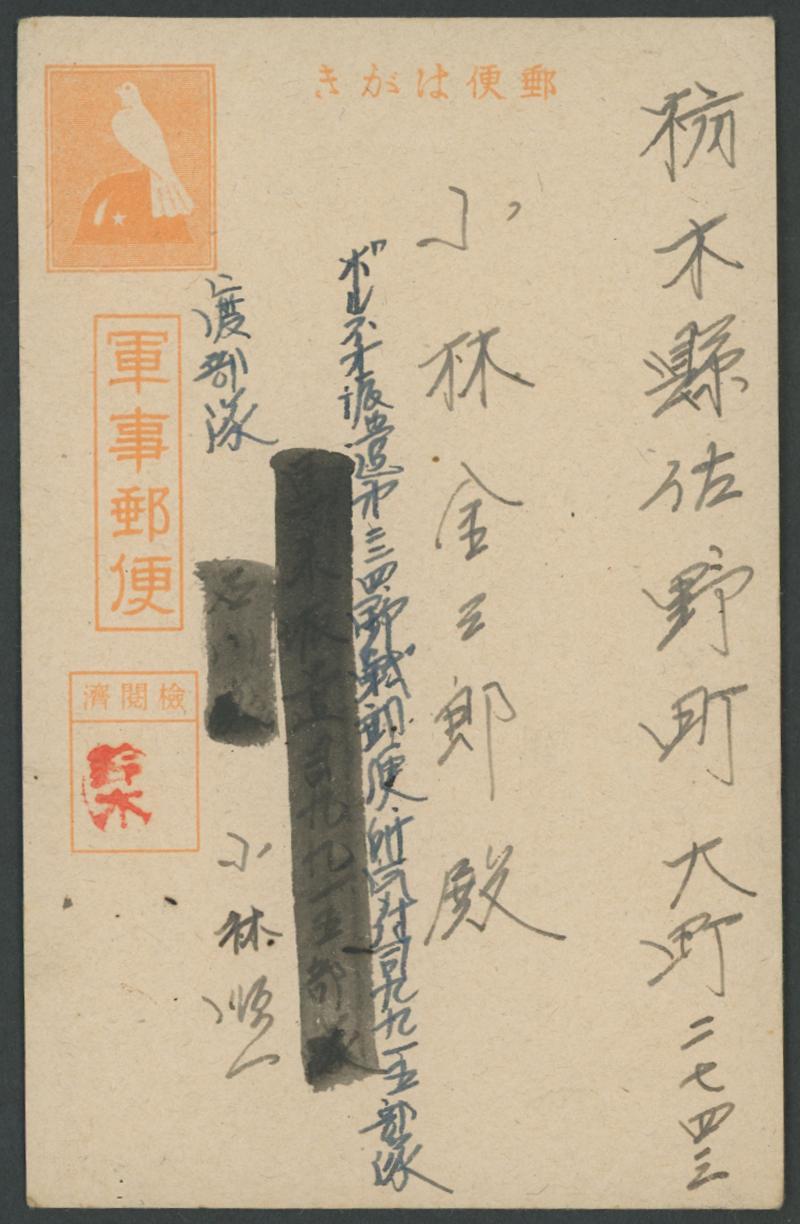 郵便はがき
栃木縣佐野町大町二七四三
小林金三郎殿
ボルネオ派遣 三四野戰郵便所気付 九九一五部隊
九九一五部
渡部隊
小林 一
軍事郵便
檢閲濟
鈴木